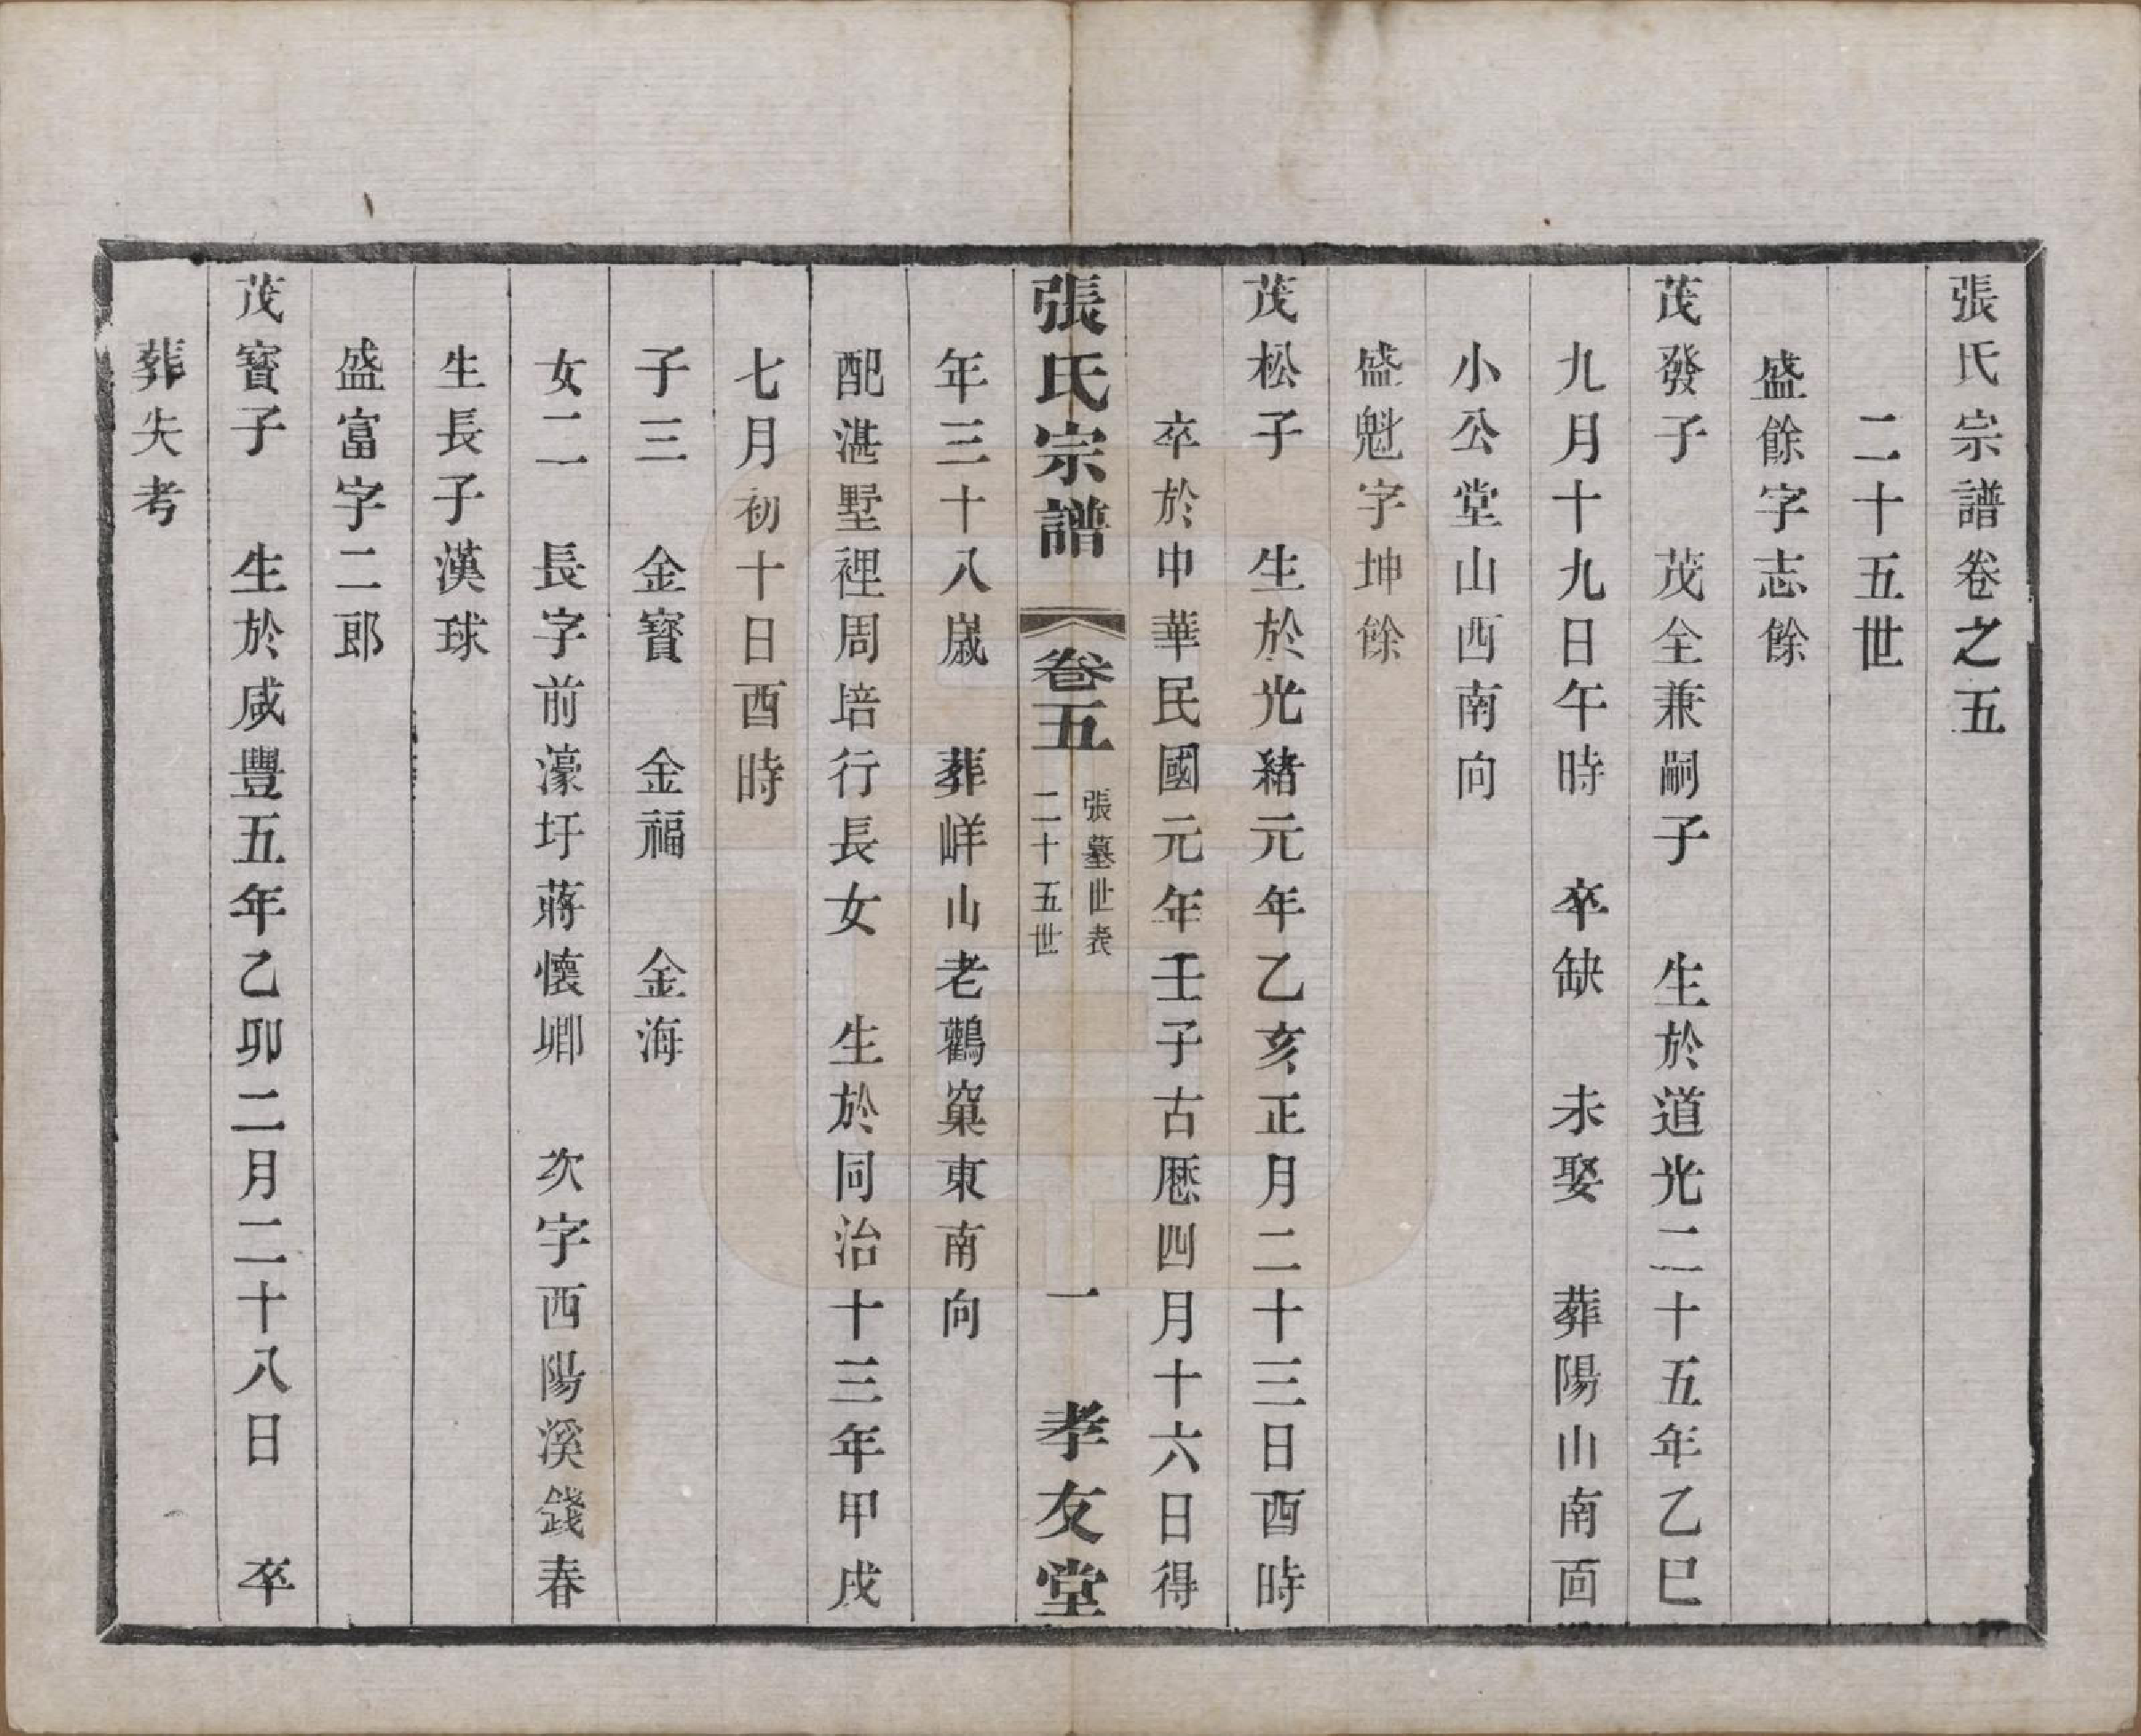 張氏宗譜卷之五
二十五世
盛餘字志餘
茂發子　茂全兼嗣子　生於道光二十五年乙巳
九月十九日午時　卒缺　未娶　葬陽山南面
小公堂山西南向
盛魁字坤餘
茂松子　生於光緒元年乙亥正月二十三日酉時
卒於中華民國元年壬子古厯四月十六日得
張氏宗譜　卷五　張墓世表　二十五世　一　孝友堂
年三十八嵗　葬𡶴山老鸛窠東南向
配湛墅裡周培行長女　生於同治十三年甲戌
七月初十日酉時
子三　金寳　金福　金海
女二　長字前濠圩蔣懷卿　次字西陽溪錢春
生長子漢球
盛富字二郎
茂寳子　生於咸豐五年乙卯二月二十八日　卒
葬失考